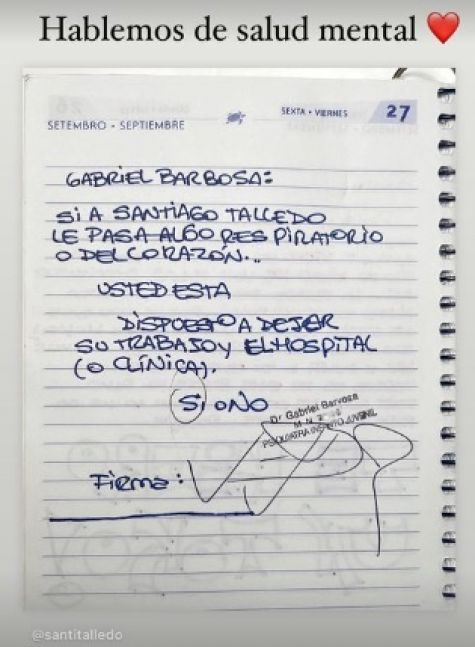 Hablemos de salud mental ❤️
SETEMBRO • SEPTIEMBRE
SEXTA • VIERNES
27
GABRIEL BARBOSA:
SI A SANTIAGO TALLEDO
LE PASA ALGO RESPIRATORIO
O DEL CORAZÓN...
USTED ESTA
DISPUESTO A DEJER
SU TRABAJO Y EL HOSPITAL
(O CLÍNICA).
SI O NO
Dr Gabriel Barvosa
M N
PSIQUIATRA INFANTO JUVENIL
Firma:
@santitalledo